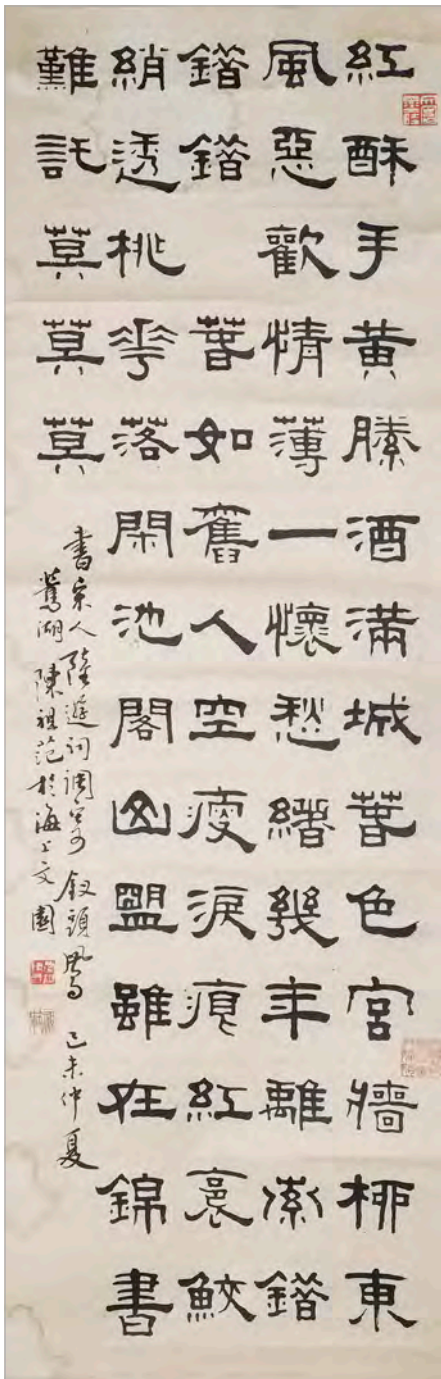 紅酥手黃縢酒滿城春色宮牆柳東
風惡歡情薄一懷愁緒幾年離索錯
錯錯 春如舊人空瘦淚痕紅裛鮫
綃透桃花落閑池閣山盟雖在錦書
難託莫莫莫
書宋人陸遊詞調寄釵頭鳳 己未仲夏
鶯湖陳祖范於海上文園